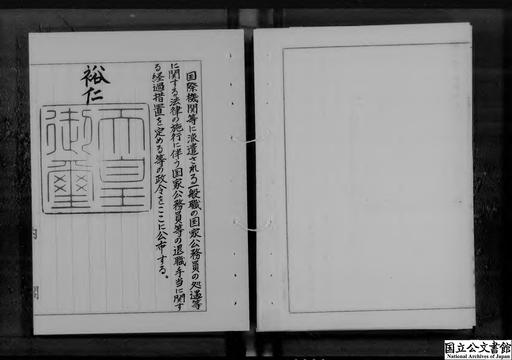 国際機関等に派遣される一般職の国家公務員の処遇等
に関する法律の施行に伴う国家公務員等の退職手当に関す
る経過措置を定める等の政令をここに公布する。
裕仁
天皇
御璽
内
閣
国立公文書館
National Archives of Japan